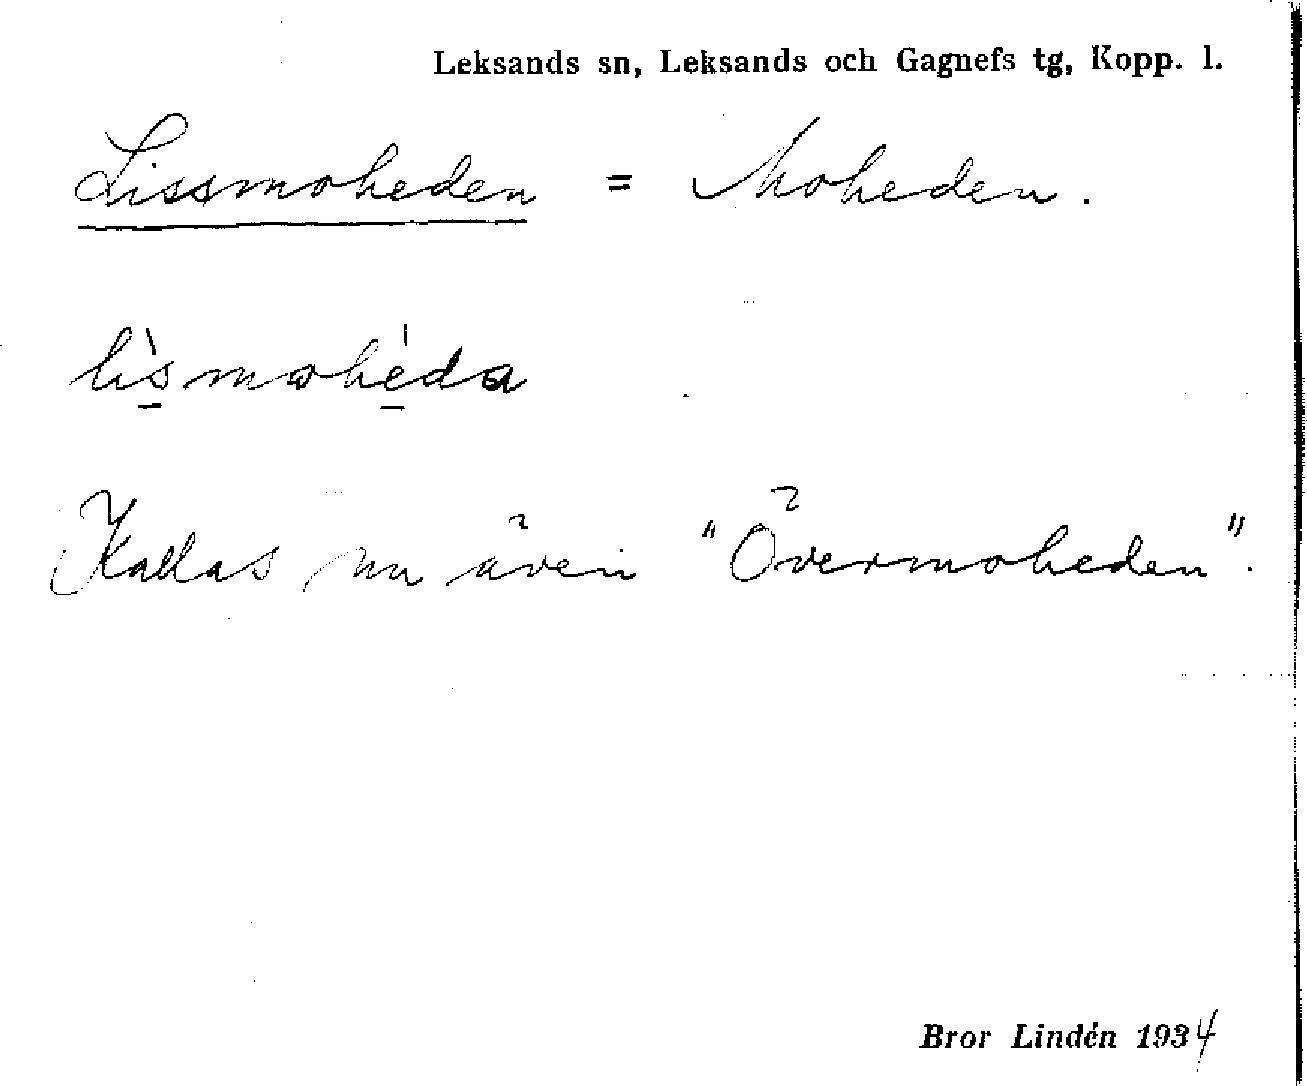 Leksands sn, Leksands och Gagnefs tg, Kopp. l.
Lissmoheden = Moheden.
lìsmohéda
Kallas nu även "Övermoheden".
Bror Lindén 1934